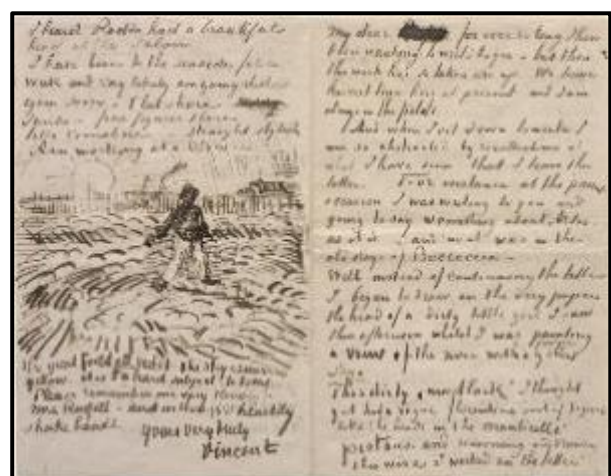 I heard Rodin had a beautiful
head at the Salon
I have been to the seaside for a
week and very likely am going thither
again soon - Flat shore
sands - fine figures there
like Cimabue - straight stylish
Am working at a Sower
the great field all violet the sky &
yellow. it is a hard subject to treat
Please remember me very kindly
Mrs Russell - and in thought I heartily
shake hands
yours very truly
Vincent
My dear for ever so long I have
been wanting to write to you - but then
the work has so taken me up. We have
harvest time here at present and I am
always in the fields
And when I sit down to write I
am so abstracted by recollections of
what I have seen that I leave the
letter. For instance at the
occasion I was writing to you and
going to say something about Arles
as it is - and as it was in the
old days of Boccaccio -
Well instead of continuing the letter
I began to draw on the very paper
the head of a dirty little girl I saw
this afternoon whilst I was painting
a view of the river with a
sky.
This dirty "mudlark" I thought
yet had a vague florentine sort of figure
like the heads in the monticelli
pictures. and reasoning and drawing
this wise I worked on the letter